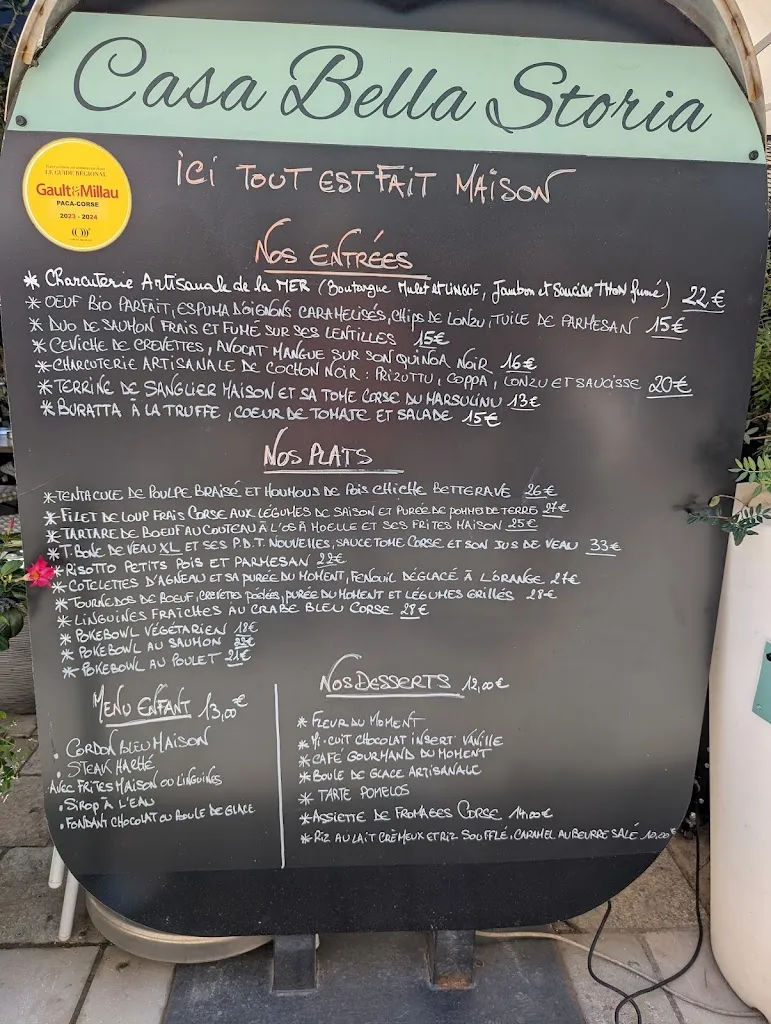 Casa Bella Storia
LE GUIDE RÉGIONAL
Gault&Millau
PACA-CORSE
2023 - 2024
ICI TOUT EST FAIT MAISON
NOS ENTRÉES
* Charcuterie Artisanale de la MER (Boutargue Mulet et LINGUE, Jambon et Saucisse THON fumé) 22€
* OEUF BIO PARFAIT, ESPUMA D'OIGNONS CARAMELISÉS, CHIPS DE LONZU, TUILE DE PARMESAN 15€
* DUO DE SAUMON FRAIS ET FUMÉ SUR SES LENTILLES 15€
* CEVICHE DE CREVETTES, AVOCAT MANGUE SUR SON QUINOA NOIR 16€
* CHARCUTERIE ARTISANALE DE COCHON NOIR : PRIZUTTU, COPPA, LONZU ET SAUCISSE 20€
* TERRINE DE SANGLIER MAISON ET SA TOME CORSE DU MARSULINU 13€
* BURATTA À LA TRUFFE, COEUR DE TOMATE ET SALADE 15€
NOS PLATS
* TENTACULE DE POULPE BRAISÉ ET HOUMOUS DE POIS CHICHE BETTERAVE 26€
* FILET DE LOUP FRAIS CORSE AUX LÉGUMES DE SAISON ET PURÉE DE POMMES DE TERRE 27€
* TARTARE DE BOEUF AU COUTEAU À L'OS À MOELLE ET SES FRITES MAISON 25€
* T.BONE DE VEAU XL ET SES P.D.T. NOUVELLES, SAUCE TOME CORSE ET SON JUS DE VEAU 33€
* RISOTTO PETITS POIS ET PARMESAN 22€
* COTELETTES D'AGNEAU ET SA PURÉE DU MOMENT, FENOUIL DÉGLACÉ À L'ORANGE 27€
* TOURNEDOS DE BOEUF, CREVETTES POÊLÉES, PURÉE DU MOMENT ET LÉGUMES GRILLÉS 28€
* LINGUINES FRAÎCHES AU CRABE BLEU CORSE 28€
* POKEBOWL VÉGÉTARIEN 18€
* POKEBOWL AU SAUMON
* POKEBOWL AU POULET 21€
MENU ENFANT 13,00€
• CORDON BLEU MAISON
• STEAK HACHÉ
AVEC FRITES MAISON OU LINGUINES
• SIROP À L'EAU
• FONDANT CHOCOLAT OU BOULE DE GLACE
NOS DESSERTS 12,00€
* FLEUR DU MOMENT
* MI-CUIT CHOCOLAT INSERT VANILLE
* CAFÉ GOURMAND DU MOMENT
* BOULE DE GLACE ARTISANALE
* TARTE POMELOS
* ASSIETTE DE FROMAGES CORSE 14,00€
* RIZ AU LAIT CRÉMEUX ET RIZ SOUFFLÉ, CARAMEL AU BEURRE SALÉ 10,00€